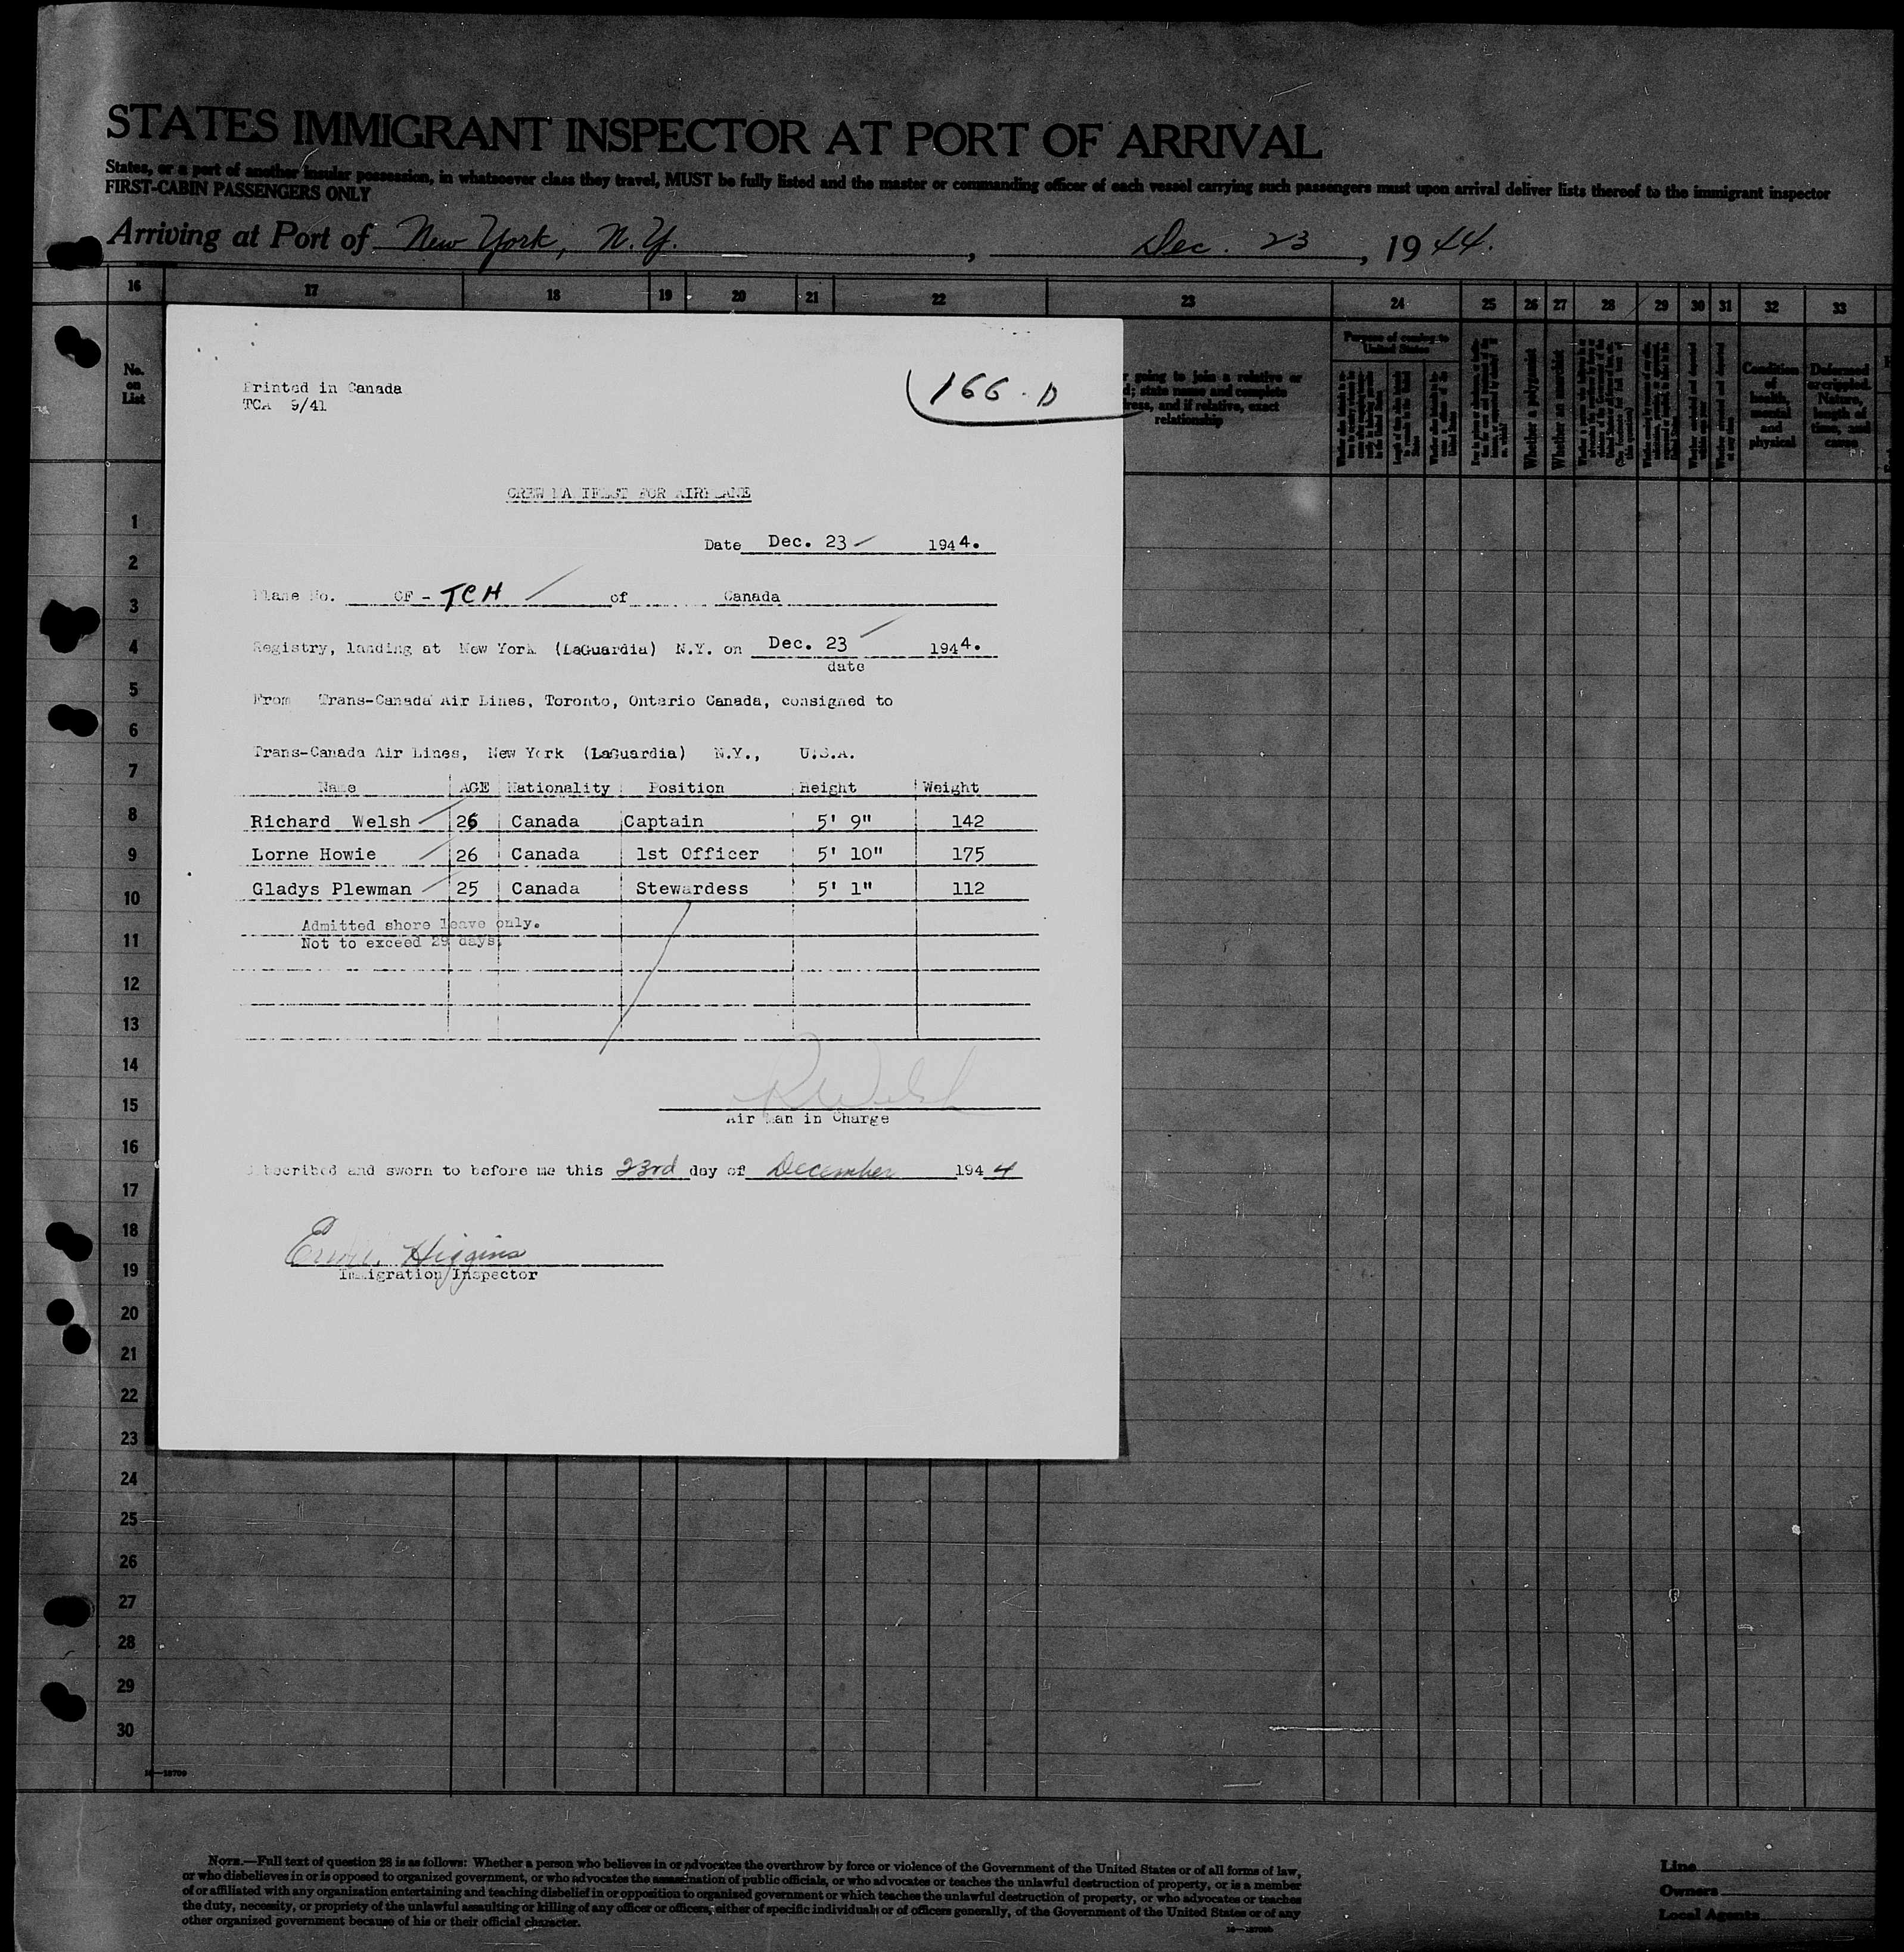 STATES IMMIGRANT INSPECTOR AT PORT OF ARRIVAL
States, or a port of another insular possession, in whatsoever class they travel, MUST be fully listed and the master or commanding officer of each vessel carrying such passengers must upon arrival deliver lists thereof to the immigrant inspector
FIRST-CABIN PASSENGERS ONLY
Arriving at Port of New York, N.Y., Dec. 23, 1944.
16 17 18 19 20 21 22 23 24 25 26 27 28 29 30 31 32 33
No. on List
Purpose of coming to United States
going to join a relative or
; state name and complete
address, and if relative, exact
relationship
Whether a polygamist
Whether an anarchist
Condition of health, mental and physical
Deformed or crippled. Nature, length of time, and cause
Printed in Canada
TCA 9/41
166-D
CREW MANIFEST FOR AIRPLANE
Date Dec. 23 1944.
Plane No. CF-TCH of Canada
Registry, landing at New York (LaGuardia) N.Y. on Dec. 23 1944.
date
From Trans-Canada Air Lines, Toronto, Ontario Canada, consigned to
Trans-Canada Air Lines, New York (LaGuardia) N.Y., U.S.A.
Name AGE Nationality Position Height Weight
Richard Welsh 26 Canada Captain 5' 9" 142
Lorne Howie 26 Canada 1st Officer 5' 10" 175
Gladys Plewman 25 Canada Stewardess 5' 1" 112
Admitted shore leave only.
Not to exceed 29 days.
R Welsh
Air Man in Charge
Subscribed and sworn to before me this 23rd day of December 1944
Higgins
Immigration Inspector
1
2
3
4
5
6
7
8
9
10
11
12
13
14
15
16
17
18
19
20
21
22
23
24
25
26
27
28
29
30
16—18709
NOTE.—Full text of question 28 is as follows: Whether a person who believes in or advocates the overthrow by force or violence of the Government of the United States or of all forms of law,
or who disbelieves in or is opposed to organized government, or who advocates the assassination of public officials, or who advocates or teaches the unlawful destruction of property, or is a member
of or affiliated with any organization entertaining and teaching disbelief in or opposition to organized government or which teaches the unlawful destruction of property, or who advocates or teaches
the duty, necessity, or propriety of the unlawful assaulting or killing of any officer or officers, either of specific individuals or of officers generally, of the Government of the United States or of any
other organized government because of his or their official character.
Line
Owners
Local Agents